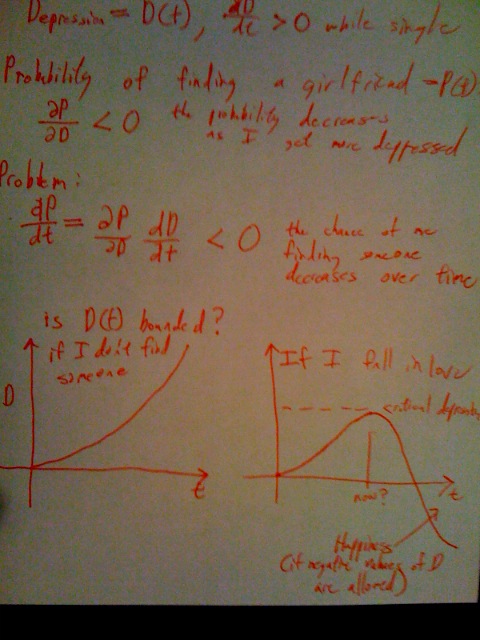 Depression = D(t), dD/dt > 0 while single
Probability of finding a girlfriend = P(t)
∂P/∂D < 0 the probability decreases
as I get more depressed
Problem:
dP/dt = ∂P/∂D dD/dt < 0 the chance of me
finding someone
decreases over time
is D(t) bounded?
if I don't find
someone
D
t
If I fall in love
critical depression
now?
t
Happiness
(if negative values of D
are allowed)